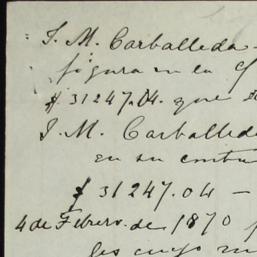 J. M. Carballeda
figura en la
$ 31247.04. que
J. M. Carballeda
en su contra
$ 31247.04 —
4 de Febrero de 1870